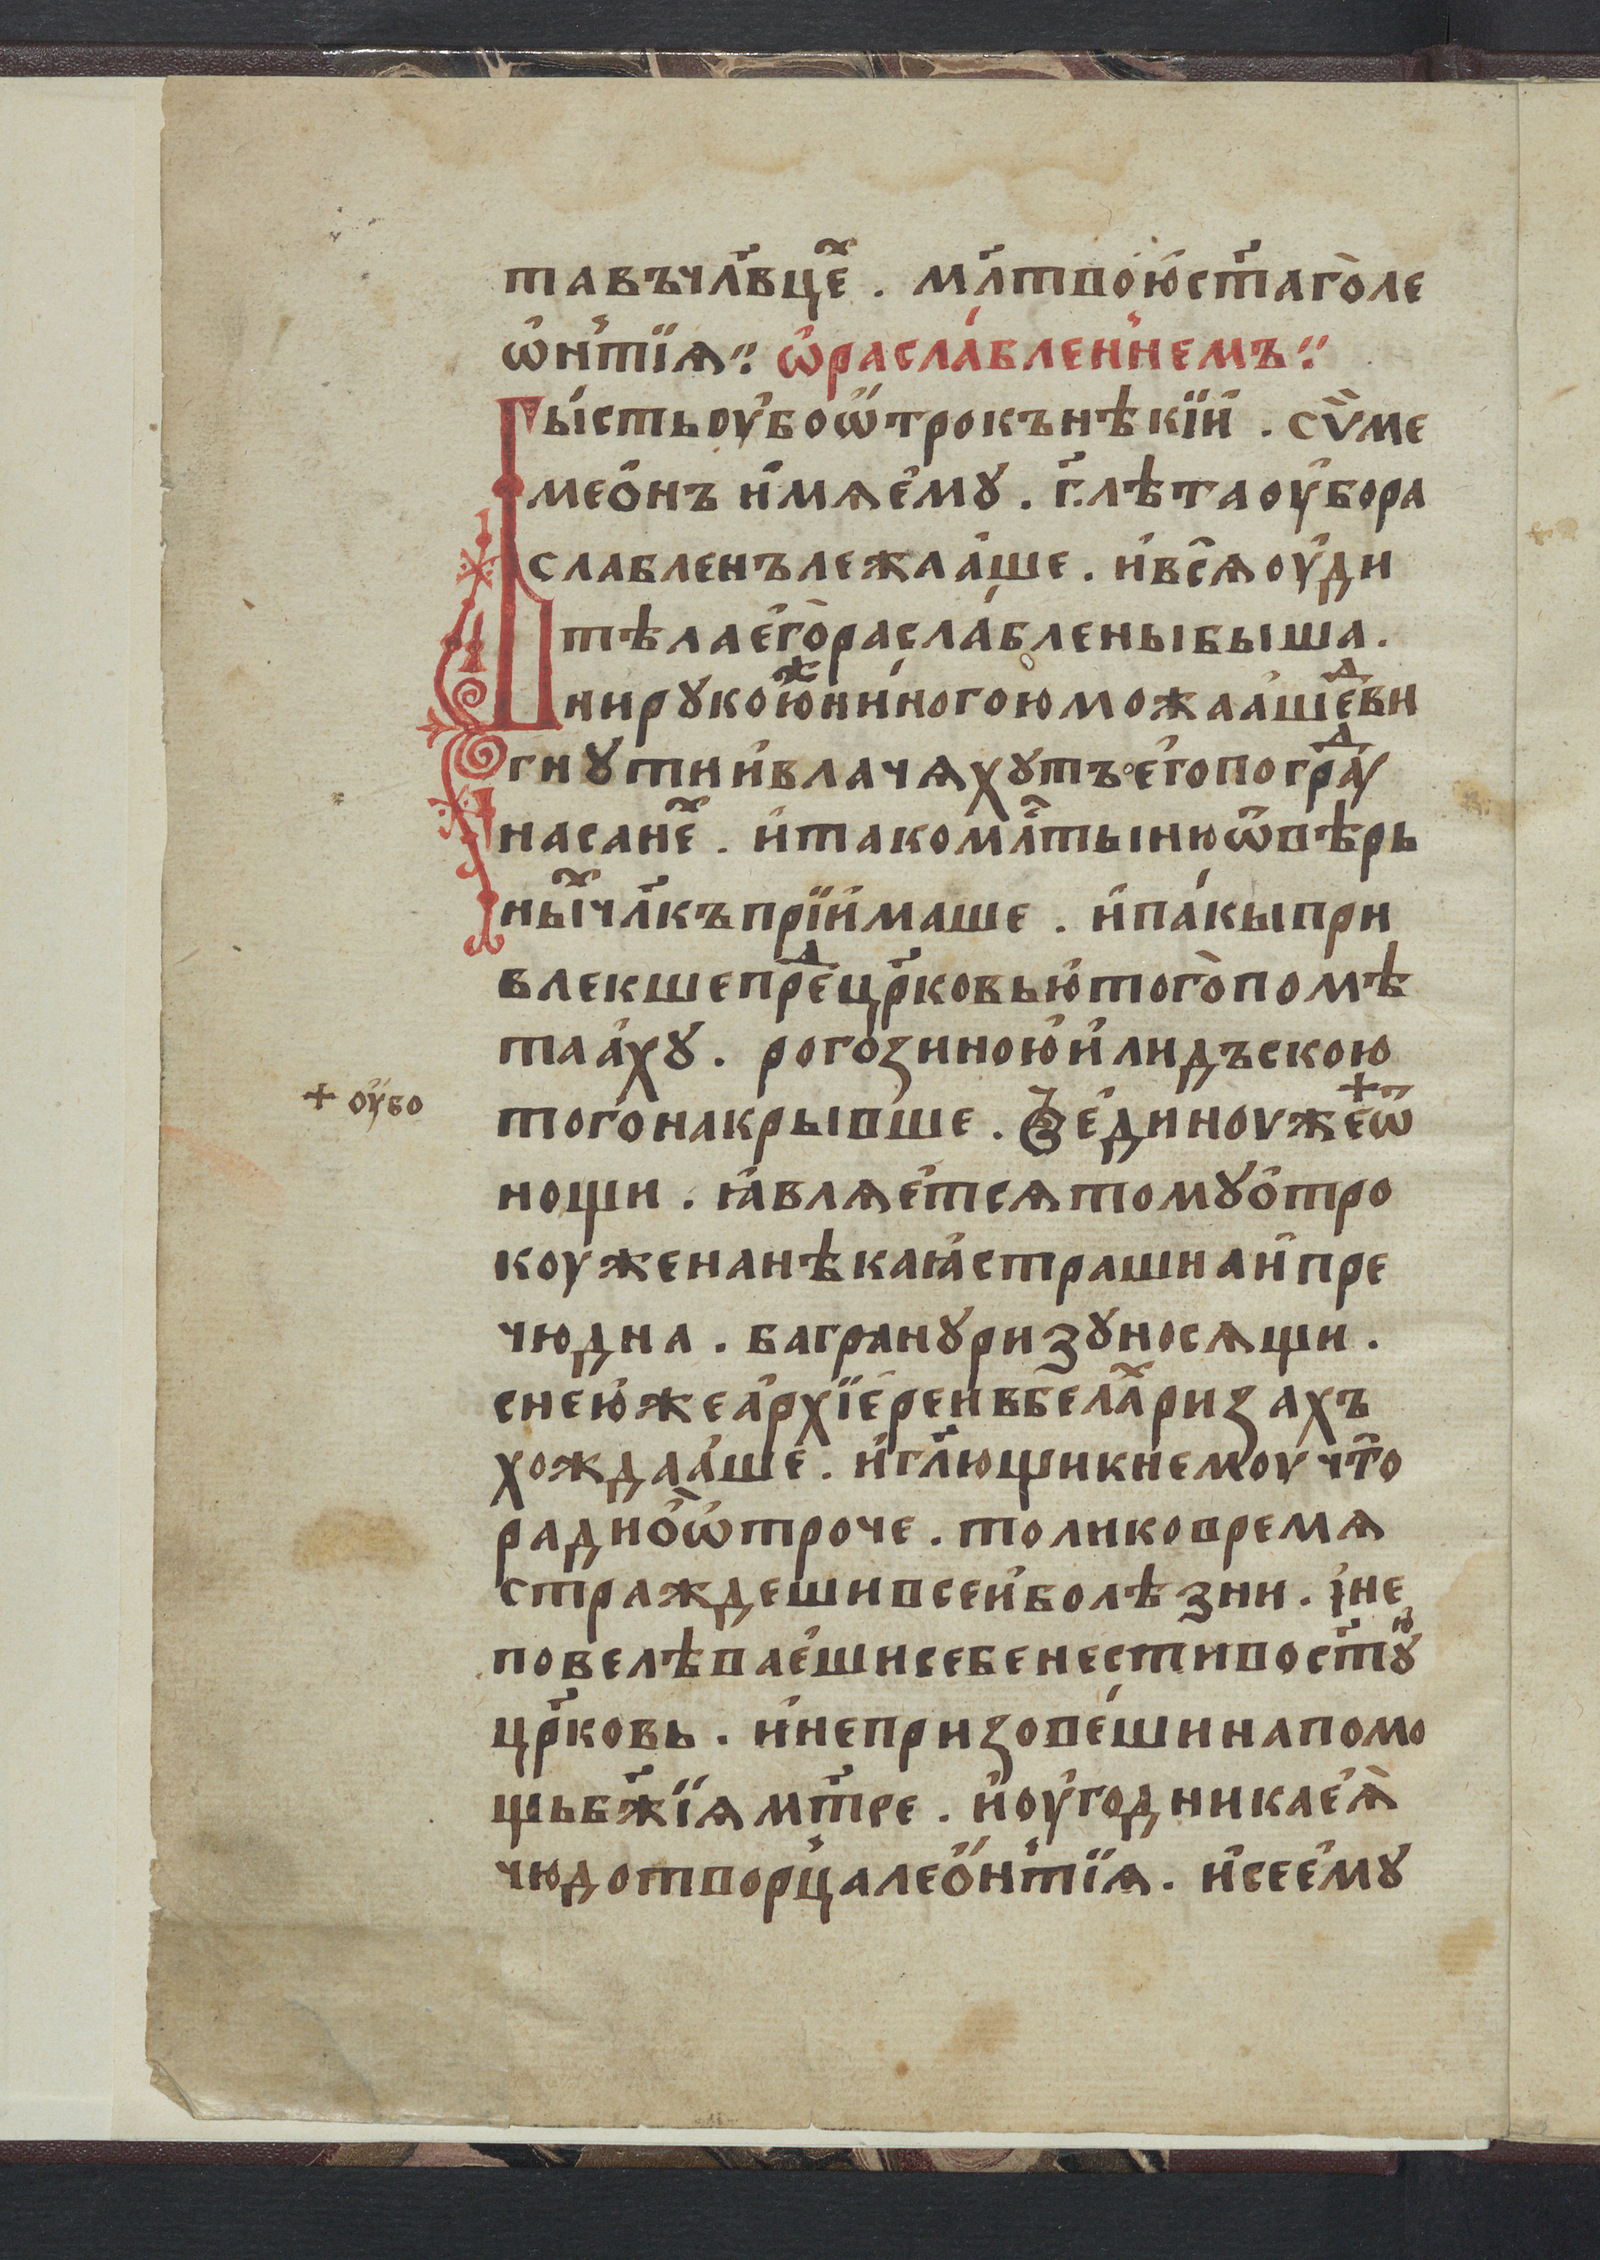 тавъчл҃вцеⷯ. мл҃твою̀ ст҃аго̀ле
ѡ҆н҆тїѧ҃ ѡ҆раслабленнемъ҃
Бысть оу҆боѿтрокънѣкїй. сѵ̀ме
меѻнъ и҆мѧе҆мꙋ. г҃.лѣта оу҆бора
слабленъ лежаа́ше. и҆всѧ оу҆ди
тѣлаего̀раслаблены быша.
нирꙋкоюⷤ ниногою можаа́шеⷣви
гнꙋтн и҆влачѧхꙋтъ е҆гопограⷣу
насанеⷯ. и҆такомл҃тынюѿвѣрь
ныⷯчл҃къ прїи҆маше. и҆пакыпри
влекшепреⷣцр҃ковью̀того̀помѣ
таа́хꙋ. рогозиною и҆лидъскою
+ оу҆бо
тогонакрывше. Ꙗ҆динoужⷷѿ
нощи. ꙗ҆влѧе҆тсѧтомꙋо҆тро
коу женанѣкаꙗ страшна и҆пре
чюдна. багрянꙋризꙋносѧщи.
снею̀же а҆рхїе҆рен вбелаⷯризахъ
хождаа́ше. и҆гл҃ющикнемоу что
радиѻѿтроче. толиковремѧ
страждеши всей болѣзни. іне
повелѣваеши себе нести вост҃ꙋⷨ
цр҃ковь. и҆непризовеши напомо
щь бж҃їѧ мт҃ре. и҆оу҆годникаеѧ̀
чюдотворцалеѻнтїѧ. и҆се е҆мꙋ